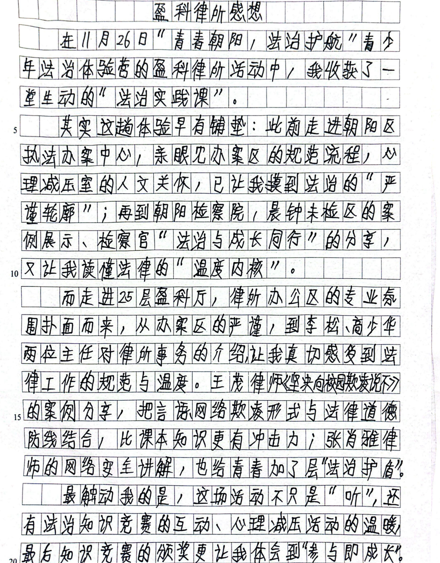 盈科律所感想
在11月26日“青春朝阳，法治护航”青少
年法治体验营的盈科律所活动中，我收获了一
堂生动的“法治实践课”。
5 其实这趟体验早有铺垫：此前走进朝阳区
执法办案中心，亲眼见办案区的规范流程，心
理减压室的人文关怀，已让我摸到法治的“严
谨轮廓”；再到朝阳检察院，晨钟未检区的案
例展示、检察官“法治与成长同行”的分享，
10 又让我读懂法律的“温度内核”。
而走进25层盈科厅，律所办公区的专业氛
围扑面而来，从办案区的严谨，到李松、商少华
两位主任对律所事务的介绍，让我真切感受到法
律工作的规范与温度。王茂律师《坚决向校园欺凌说不》
15 的案例分享，把言语、网络欺凌形式与法律道德
防线结合，比课本知识更有冲击力；张首雅律
师的网络安全讲解，也给青春加了层“法治护盾”。
最触动我的是，这场活动不只是“听”，还
有法治知识竞赛的互动、心理减压活动的温暖，
20 最后知识竞赛的颁奖更让我体会到“参与即成长”。